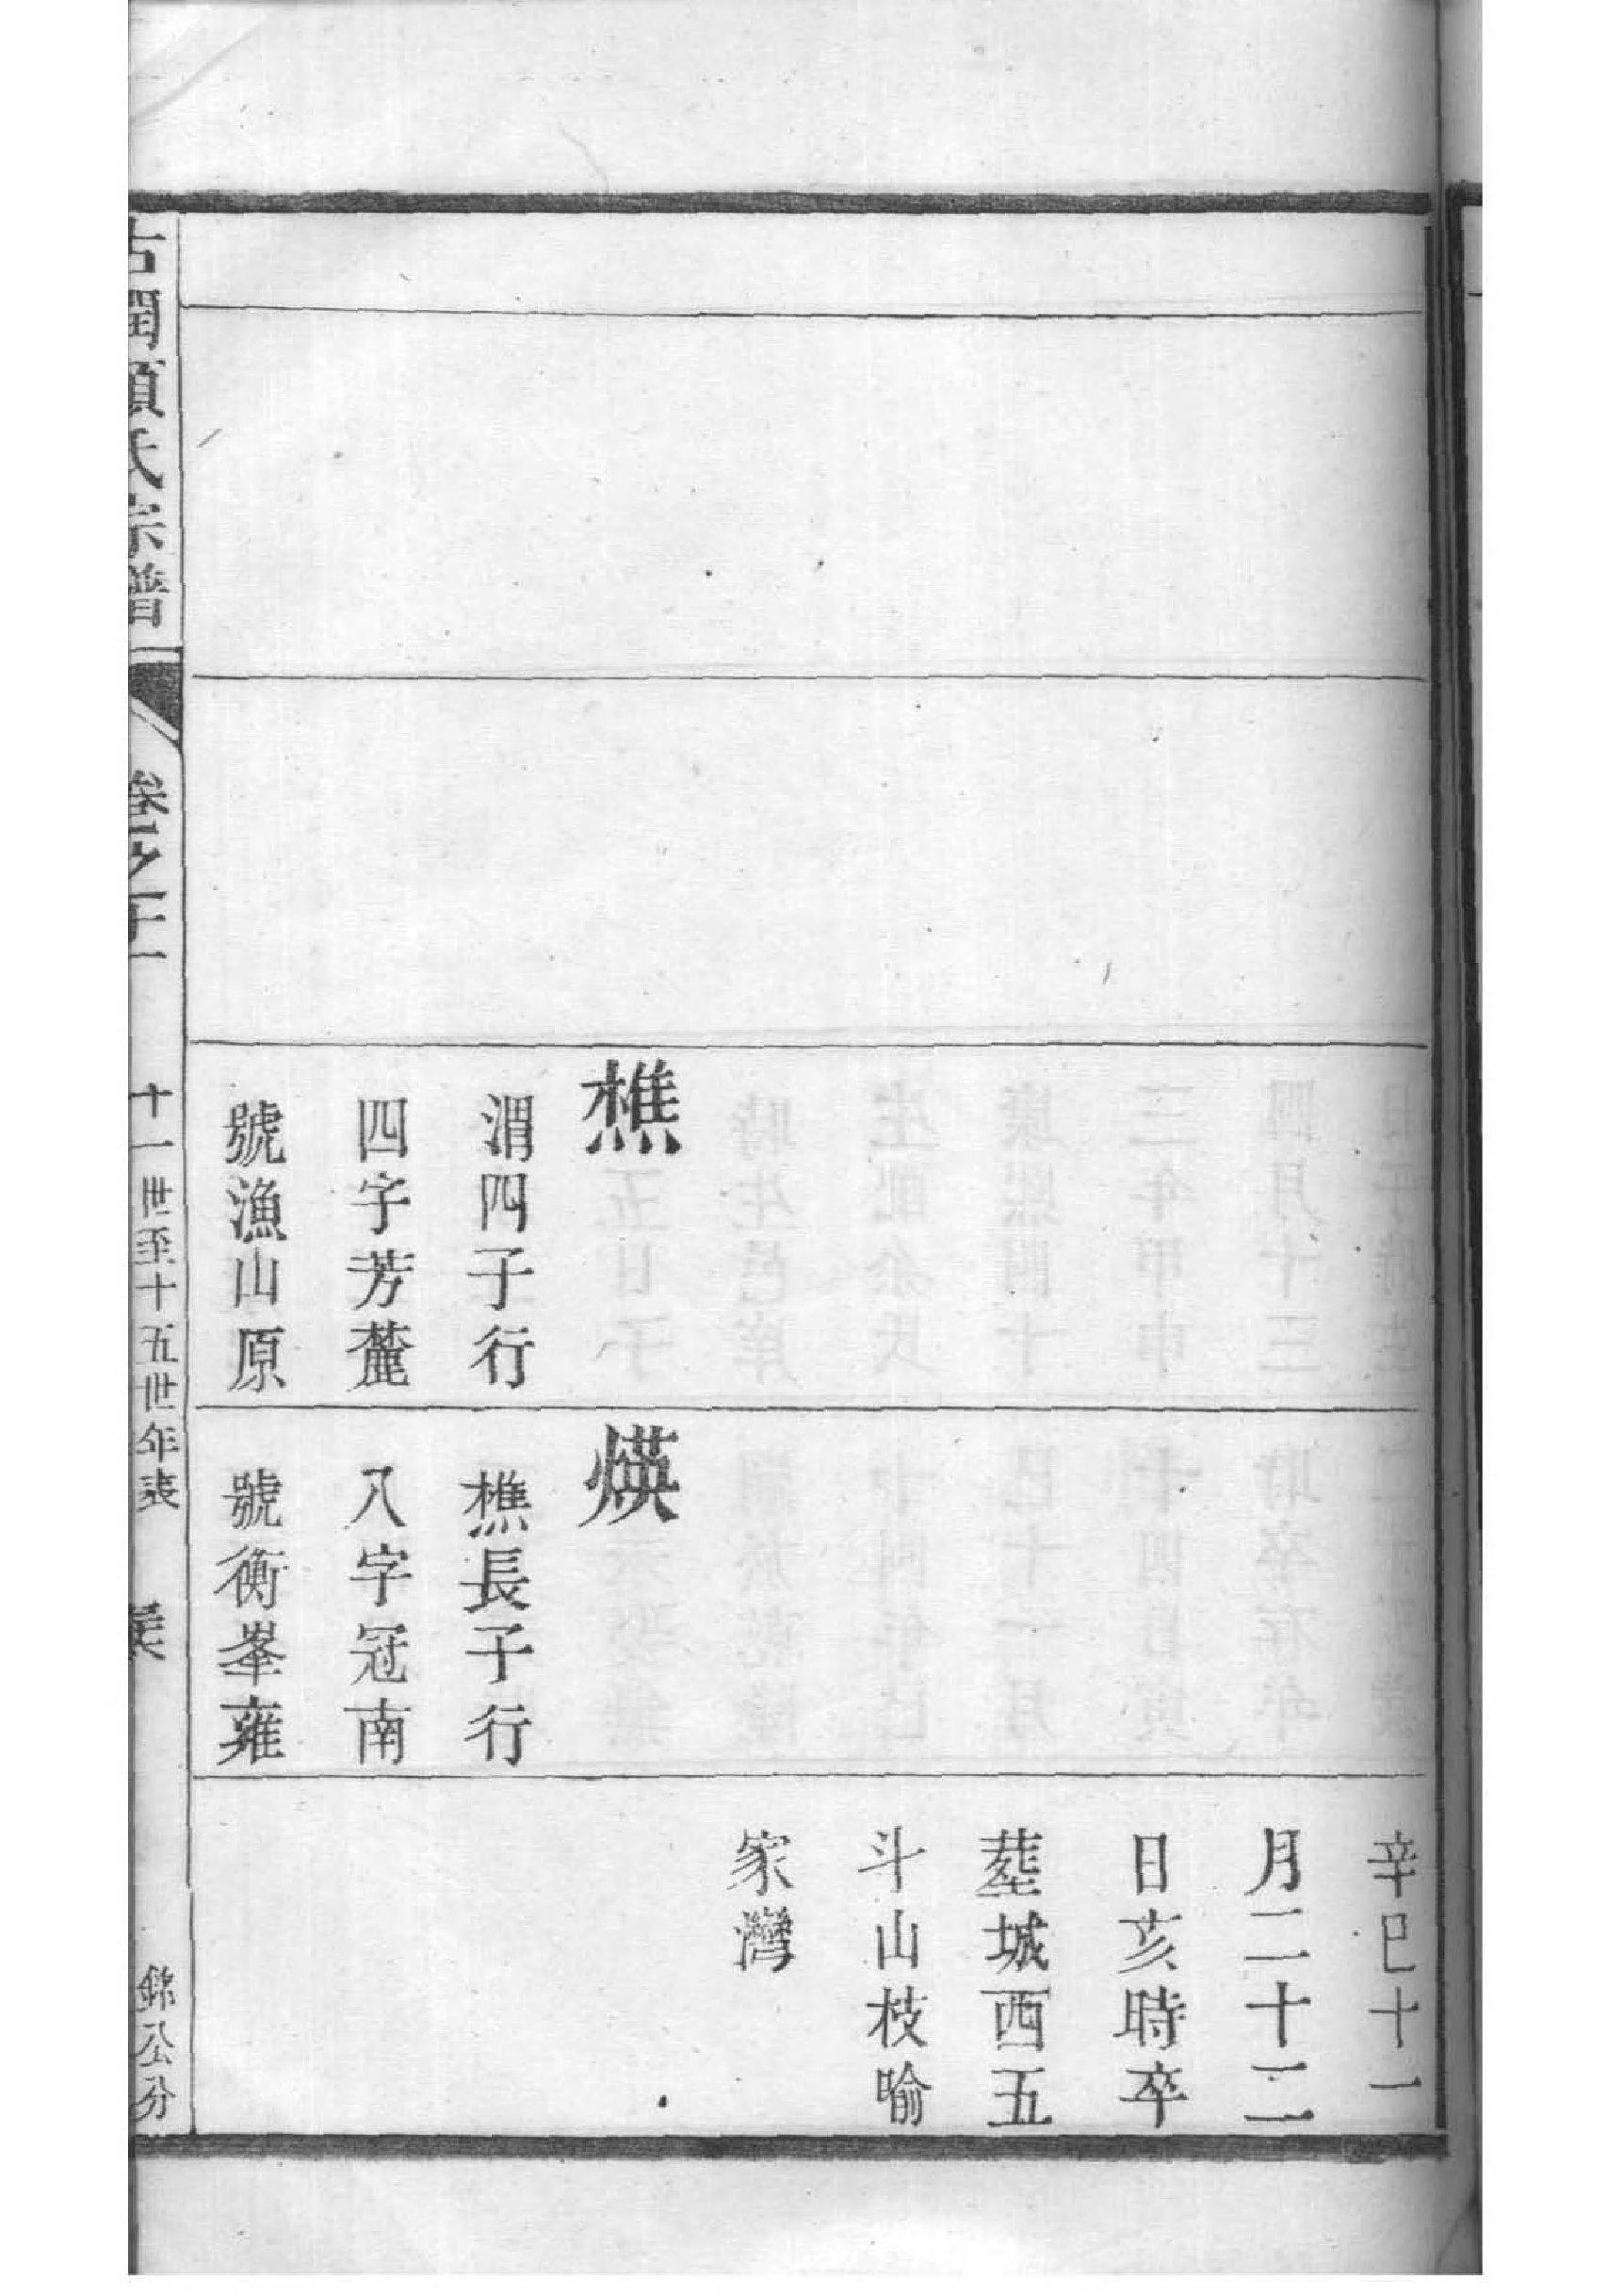 樵
渭四子行
四字芳麓
號漁山原
煐
樵長子行
八字冠南
號衡峯雍
辛巳十一
月二十二
日亥時卒
塟城西五
斗山枝喻
家灣
氏宗譜
卷之十一
十一世至十五世年表
錦公分